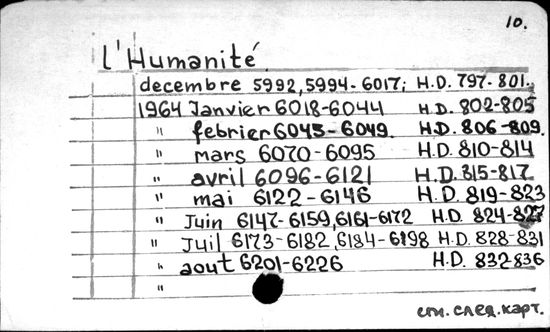 10.
l'Humanité
decembre 5992,5994-6017; H.D. 797-801.
1964 Janvier 6018-6044 H.D. 802-805
" febrier 6045-6049. H.D. 806-809.
" mars 6070-6095 H.D. 810-814
" avril 6096-6121 H.D. 815-817
" mai 6122-6146 H.D. 819-823
" Juin 6147-6159,6161-6172 H.D. 824-827
" Juil 6173-6182,6184-6198 H.D. 828-831
" aout 6201-6226 H.D. 832-836
"
см. след. карт.